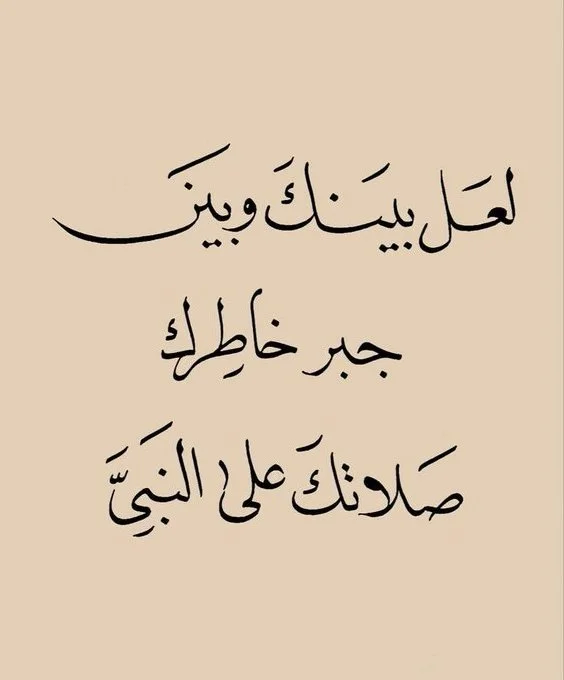 لعَل بيَنكَ وبينَ
جبر خاطِرك
صَلاتكَ على النَبِيَّ